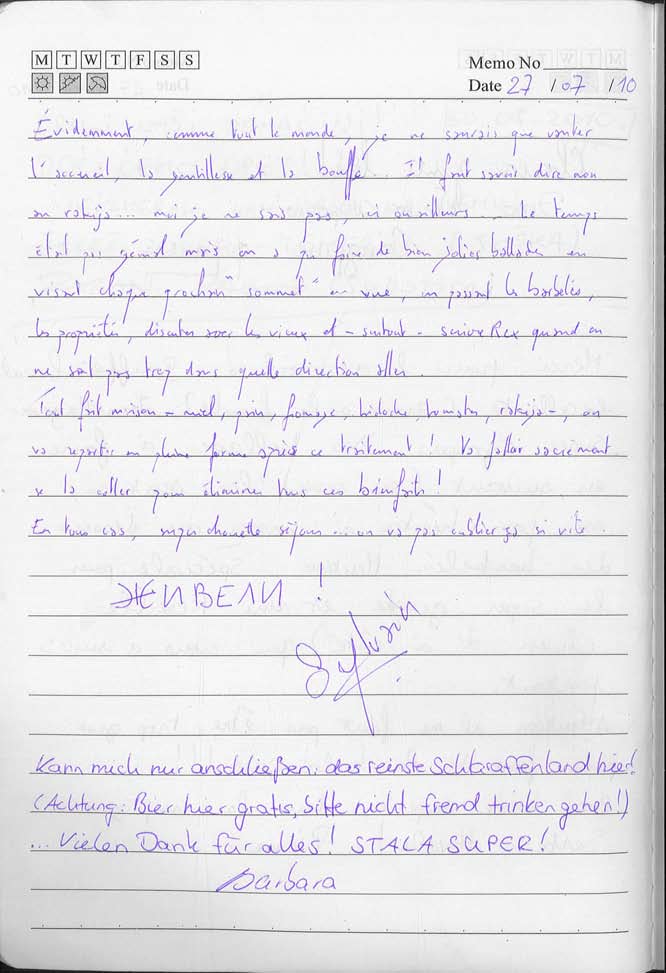 M T W T F S S
Memo No
Date 27 / 07 / 10
Évidemment, comme tout le monde, je ne saurais que vanter
l'accueil, la gentillesse et la bouffe. Il faut savoir dire non
au rakija... moi je ne sais pas, ici ou ailleurs... Le temps
était pas génial mais on a pu faire de bien jolies ballades en
visant chaque prochain "sommet" en vue, en passant les barbelés,
les propriétés, discuter avec les vieux et - surtout - suivre Rex quand on
ne sait pas trop dans quelle direction aller.
Tout fait maison - miel, pain, fromage, bidoche, tomates, rakija -, on
va repartir en pleine forme après ce traitement! Va falloir sacrément
se la coller pour éliminer tous ces bienfaits!
En tous cas, super chouette séjour... on va pas oublier ça si vite.
ЖИВЕЛИ!
Sylvain
Kann mich nur anschließen: das reinste Schlaraffenland hier!
(Achtung: Bier hier gratis, bitte nicht fremd trinken gehen!)
... Vielen Dank für alles! STALA SUPER!
Barbara